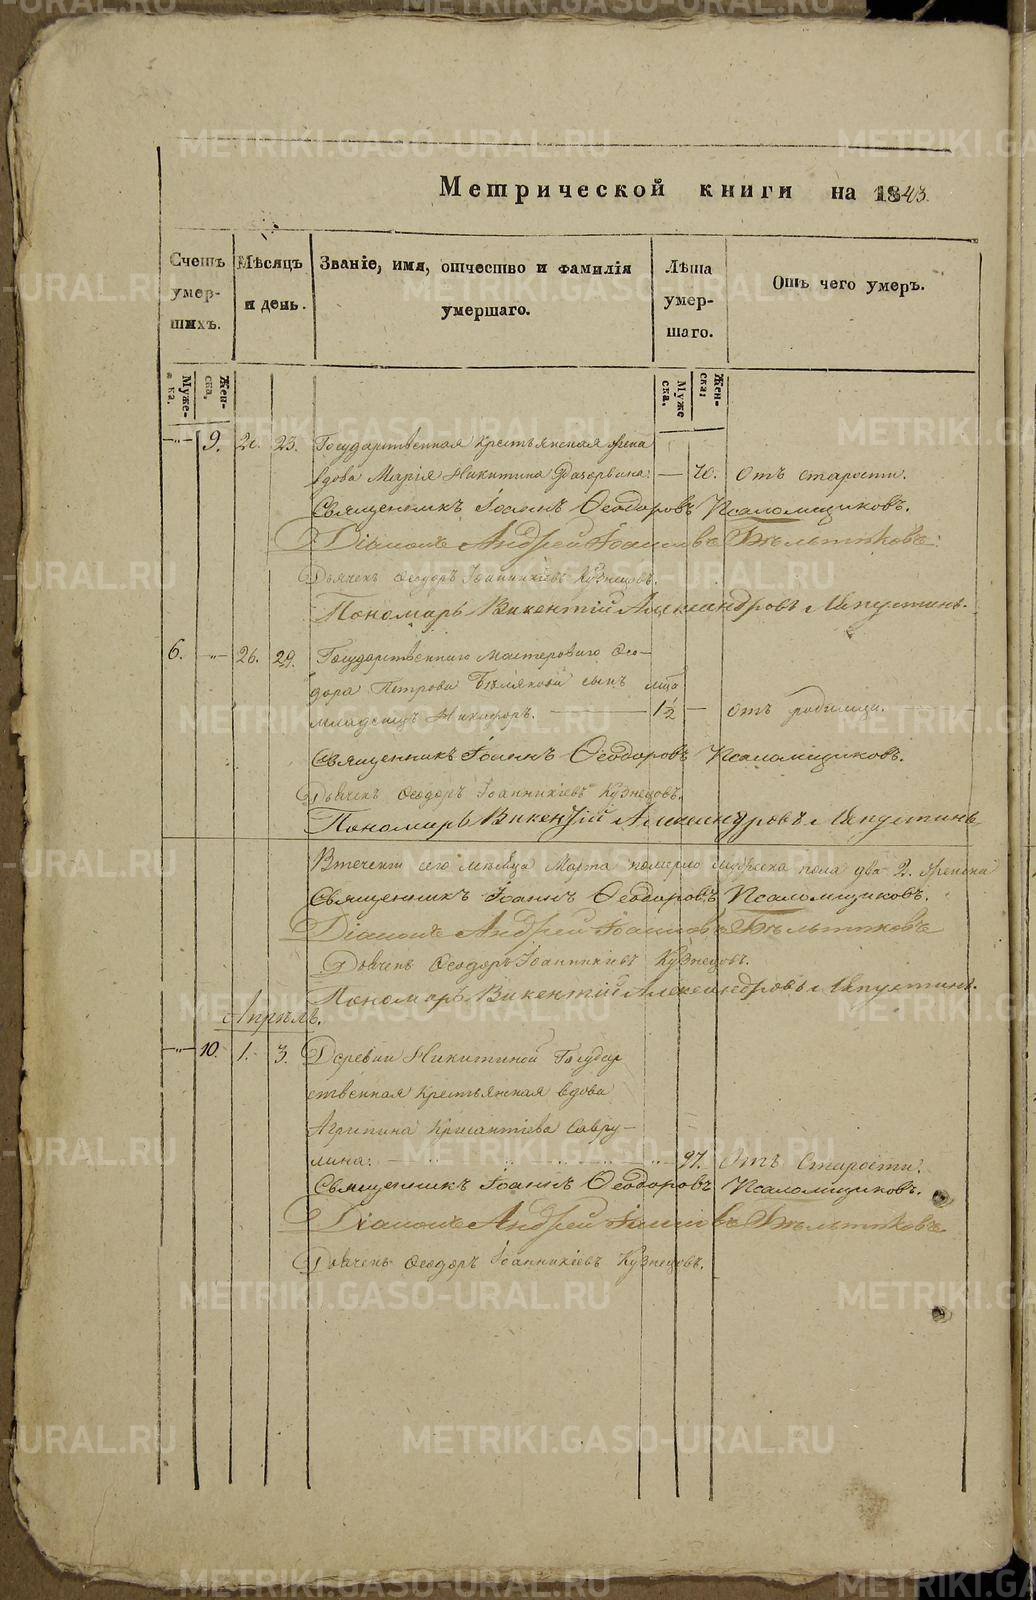 Метрической книги на 1843.
Счетъ умер- шихъ.
Мѣсяцъ и день.
Званіе, имя, отчество и фамилія умершаго.
Лѣта умер- шаго.
Отъ чего умеръ.
Муже- ска.
Жен- ска.
Муже ска.
Жен- ска.
9. 20. 23. Государственная крестьянская жена
вдова Марія Никитина 70. отъ старости.
Священникъ Іоаннъ Ѳеодоровъ Псаломщиковъ.
Діаконъ Андрей Іоанновъ Бѣльтюковъ.
Дьячекъ Ѳеодоръ Іоанникіевъ Кузнецовъ.
Пономарь Викентій Александровъ Ляпустинъ.
6. 26. 29. Государственнаго мастероваго Ѳео-
дора Петрова Бѣлякова сынъ
младенецъ Никифоръ. 1½ отъ родимца.
Священникъ Іоаннъ Ѳеодоровъ Псаломщиковъ.
Дьячекъ Ѳеодоръ Іоанникіевъ Кузнецовъ.
Пономарь Викентій Александровъ Ляпустинъ
Втеченіи сего мѣсяца Марта померло мужеска пола два 2. женска
Священникъ Іоаннъ Ѳеодоровъ Псаломщиковъ.
Діаконъ Андрей Іоанновъ Бѣльтюковъ
Дьячекъ Ѳеодоръ Іоанникіевъ Кузнецовъ.
Пономарь Викентій Александровъ Ляпустинъ.
Апрѣль.
10. 1. 3. Деревни Никитиной Государ
ственная крестьянская вдова
Агрипина Крисантіева Савру-
лина. 97. Отъ Старости.
Священникъ Іоаннъ Ѳеодоровъ Псаломщиковъ.
Діаконъ Андрей Іоанновъ Бѣльтюковъ
Дьячекъ Ѳеодоръ Іоанникіевъ Кузнецовъ.
METRIKI.GASO-URAL.RU